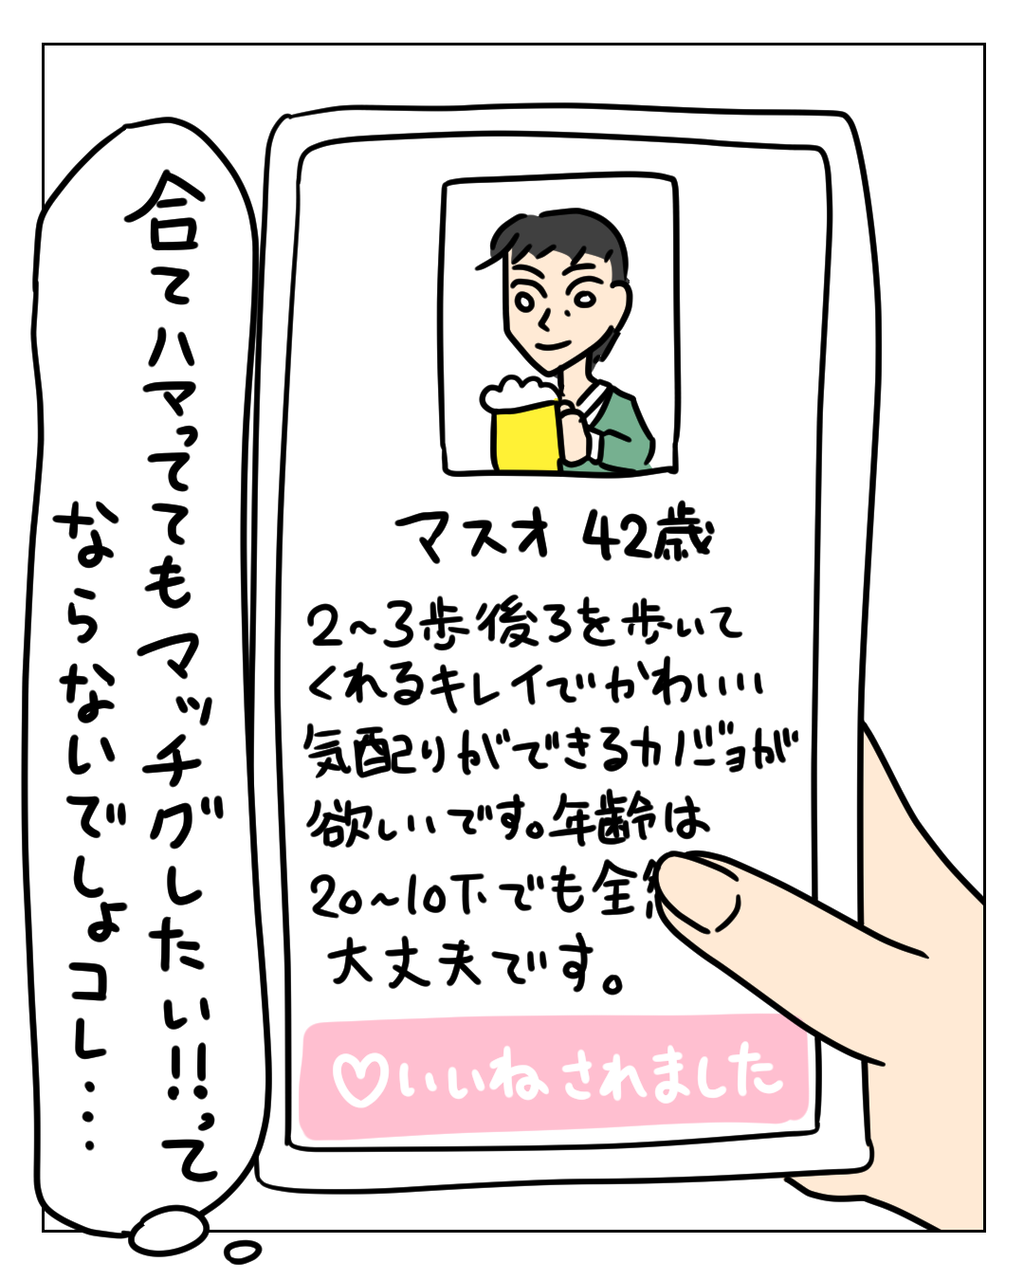 合てハマっててもマッチグしたい!!って
ならないでしょコレ・・・
マスオ 42歳
2~3歩後ろを歩いて
くれるキレイでかわいい
気配りができるカノジョが
欲しいです。年齢は
20~10下でも全
大丈夫です。
♡いいねされました